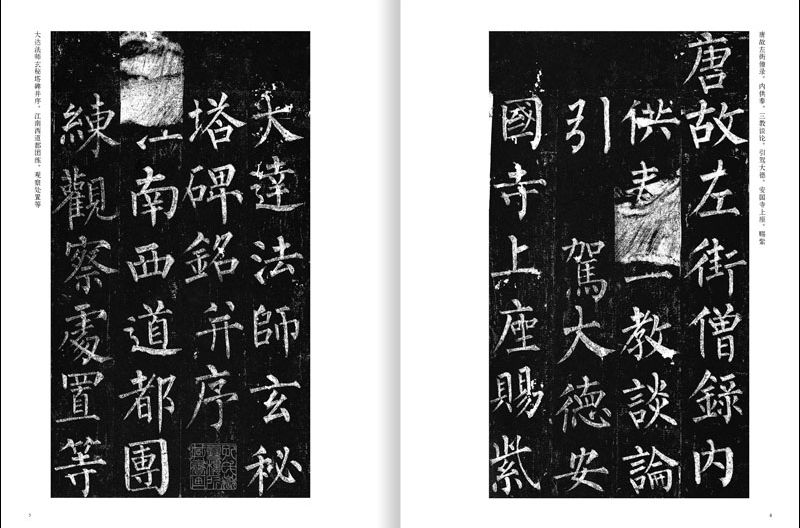 唐故左街僧录、内供奉、三教谈论、引驾大德、安国寺上座、赐紫
唐故左街僧錄内
供奉三教談論
引駕大德安
國寺上座賜紫
大達法師玄秘
塔碑銘并序
江南西道都團
練觀察處置等
大达法师玄秘塔碑并序。江南西道都团练、观察处置等